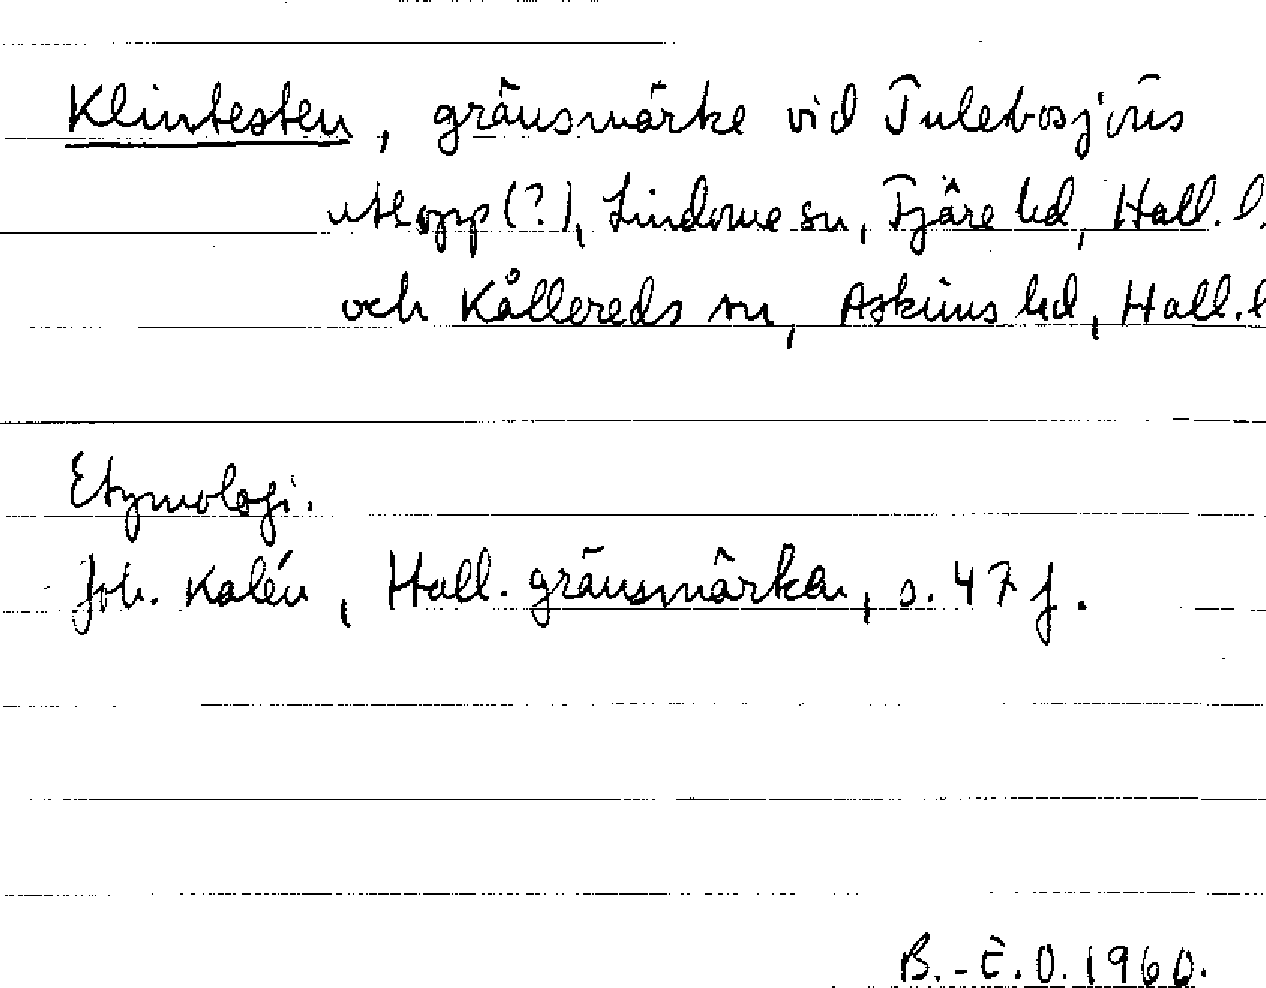 Klintesten, gränsmärke vid Tulebosjöns
utlopp (?), Lindome sn, Fjäre hd, Hall. l.
och Kållereds sn, Askims hd, Hall. l
Etymologi.
Joh. Kalén, Hall. gränsmärken, s. 47 f.
B.-E.O. 1960.